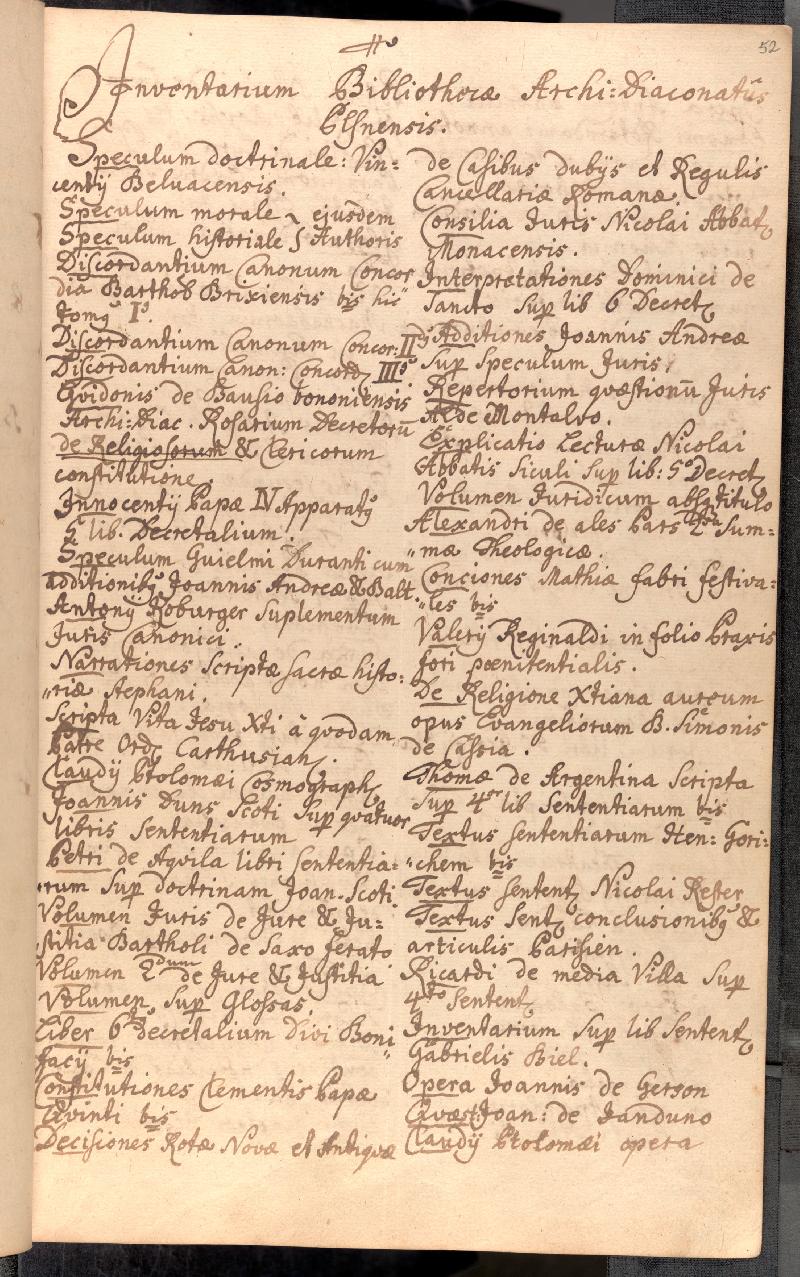 52
Inventarium Bibliothecæ Archi:Diaconatûs
Plsnensis.
Speculum doctrinale: Vin=
centÿ Beluacensis.
Speculum morale ejusdem
Speculum historiale Authoris
Discordantium Canonum Concor
dia Barthob Brixiensis bis hic
Tomg Is.
Discordantium Canonum Concor: IIs
Discordantium Canon: Concord IIIs
Gvidonis de Bausio bononiensis
Archi:Diac. Rosarium Decretorū
de Religiosorum & Clericorum
constitutione.
Innocentÿ Papæ IV Apparatg
5 lib. Decretalium.
Speculum Guielmi Duranti cum
additionibg Joannis Andreæ & Balt.
Antonÿ Koburger Suplementum
Juris Canonici.
Narrationes Scriptæ Sacræ histo=
"riæ Stephani.
Scripta Vita Jesu Xti â qvodam
Patre Ord Carthusian.
Claudÿ Ptolomæi Cosmograph
Joannis Duns Scoti Sup qvatuor
libris Sententiarum
Petri de Aqvila libri Sententia=
"rum Sup doctrinam Joan. Scoti
Volumen Juris de Jure & Ju=
"stitia Bartholi de Saxo ferato
Volumen 2dum de Jure & Justitia
Volumen Sup Glossas.
Liber 6 Decretalium Divi Boni
facÿ bis
Constitutiones Clementis Papæ
Qvinti bis
Decisiones Rotæ Novæ et Antiqvæ
de Casibus dubÿs et Regulis
Cancellariæ Romanæ.
Consilia Juris Nicolai Abbat
Monacensis.
Interpretationes Dominici de
Sancto Sup lib 6 Decret
Additiones Joannis Andreæ
Sup Speculum Juris.
Repertorium qvæstionū Juris
de Montalvo.
Explicatio Lecturæ Nicolai
Abbatis Siculi Sup lib: 5 Decret
Volumen Juridicum absq titulo
Alexandri de ales Pars 2 Sum=
"mæ Theologicæ.
Conciones Mathiæ fabri festiva=
"les bis
Valerÿ Reginaldi in folio Praxis
fori pœnitentialis.
De Religione Xtiana aureum
opus Evangeliorum B. Simonis
de Cassia.
Thomæ de Argentina Scripta
Sup 4or lib Sententiarum bis
Textus sententiarum Hen: Gori=
"chem bis
Textus sentent Nicolai Kester
Textus Sent conclusionibg &
articulis Parisien.
Ricardi de media Villa Sup
4to Sentent
Inventarium Sup lib Sentent
Gabrielis Biel.
Opera Joannis de Gerson
Qvæst: Joan: de Janduno
Claudÿ Ptolomæi opera